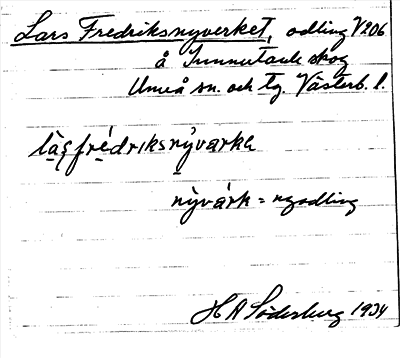 Lars Fredriksnyverket, odling V206
å Innertavle skog
Umeå sn. och tg. Västerb. l.
lạṣfrédriksnỳvạrka
nỳvárk = nyodling
H A Söderberg 1934